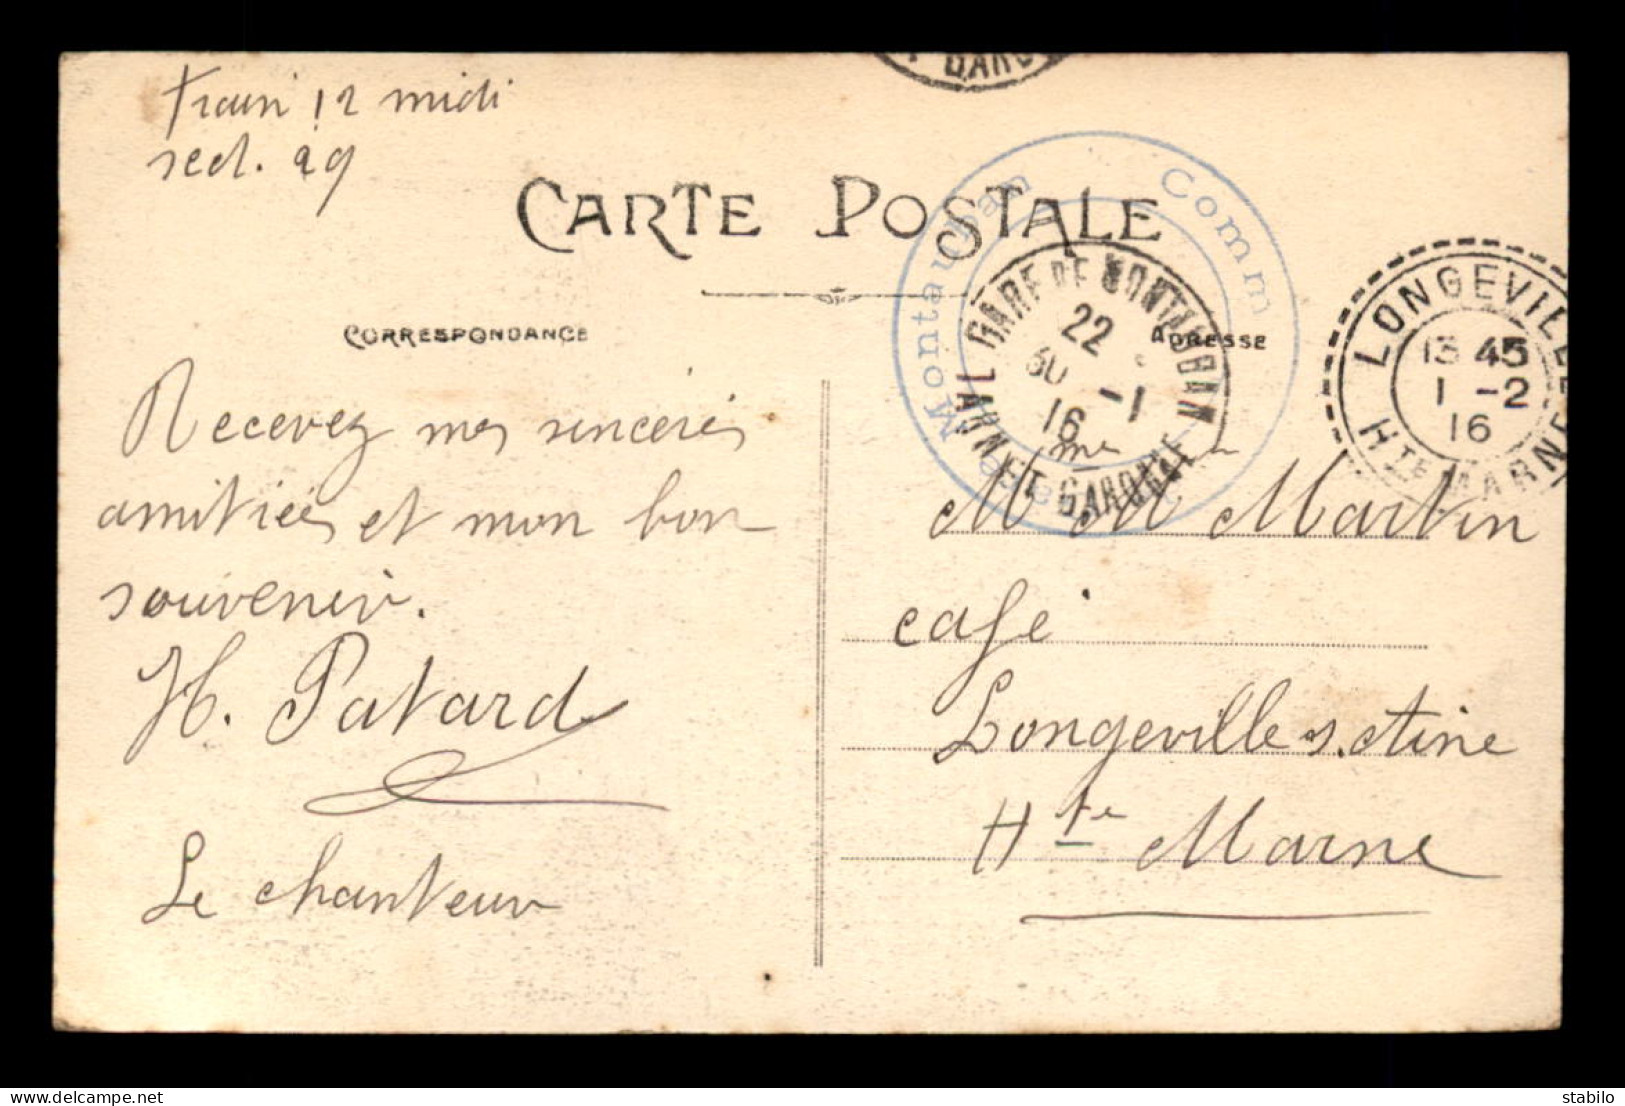 Train 12 midi
sect. 29
CARTE POSTALE
CORRESPONDANCE
ADRESSE
Montauban
Comm
GARE DE MONTAUBAN
22
30 -1
16
TARN ET GARONNE
LONGEVILLE
13 45
1 -2
16
HTE MARNE
Recevez mes sincères
amitiées et mon bon
souvenir.
H. Patard
Le chanteur
Mme M Martin
café
Longeville s. Aine
Hte Marne
delcampe.net
stabilo